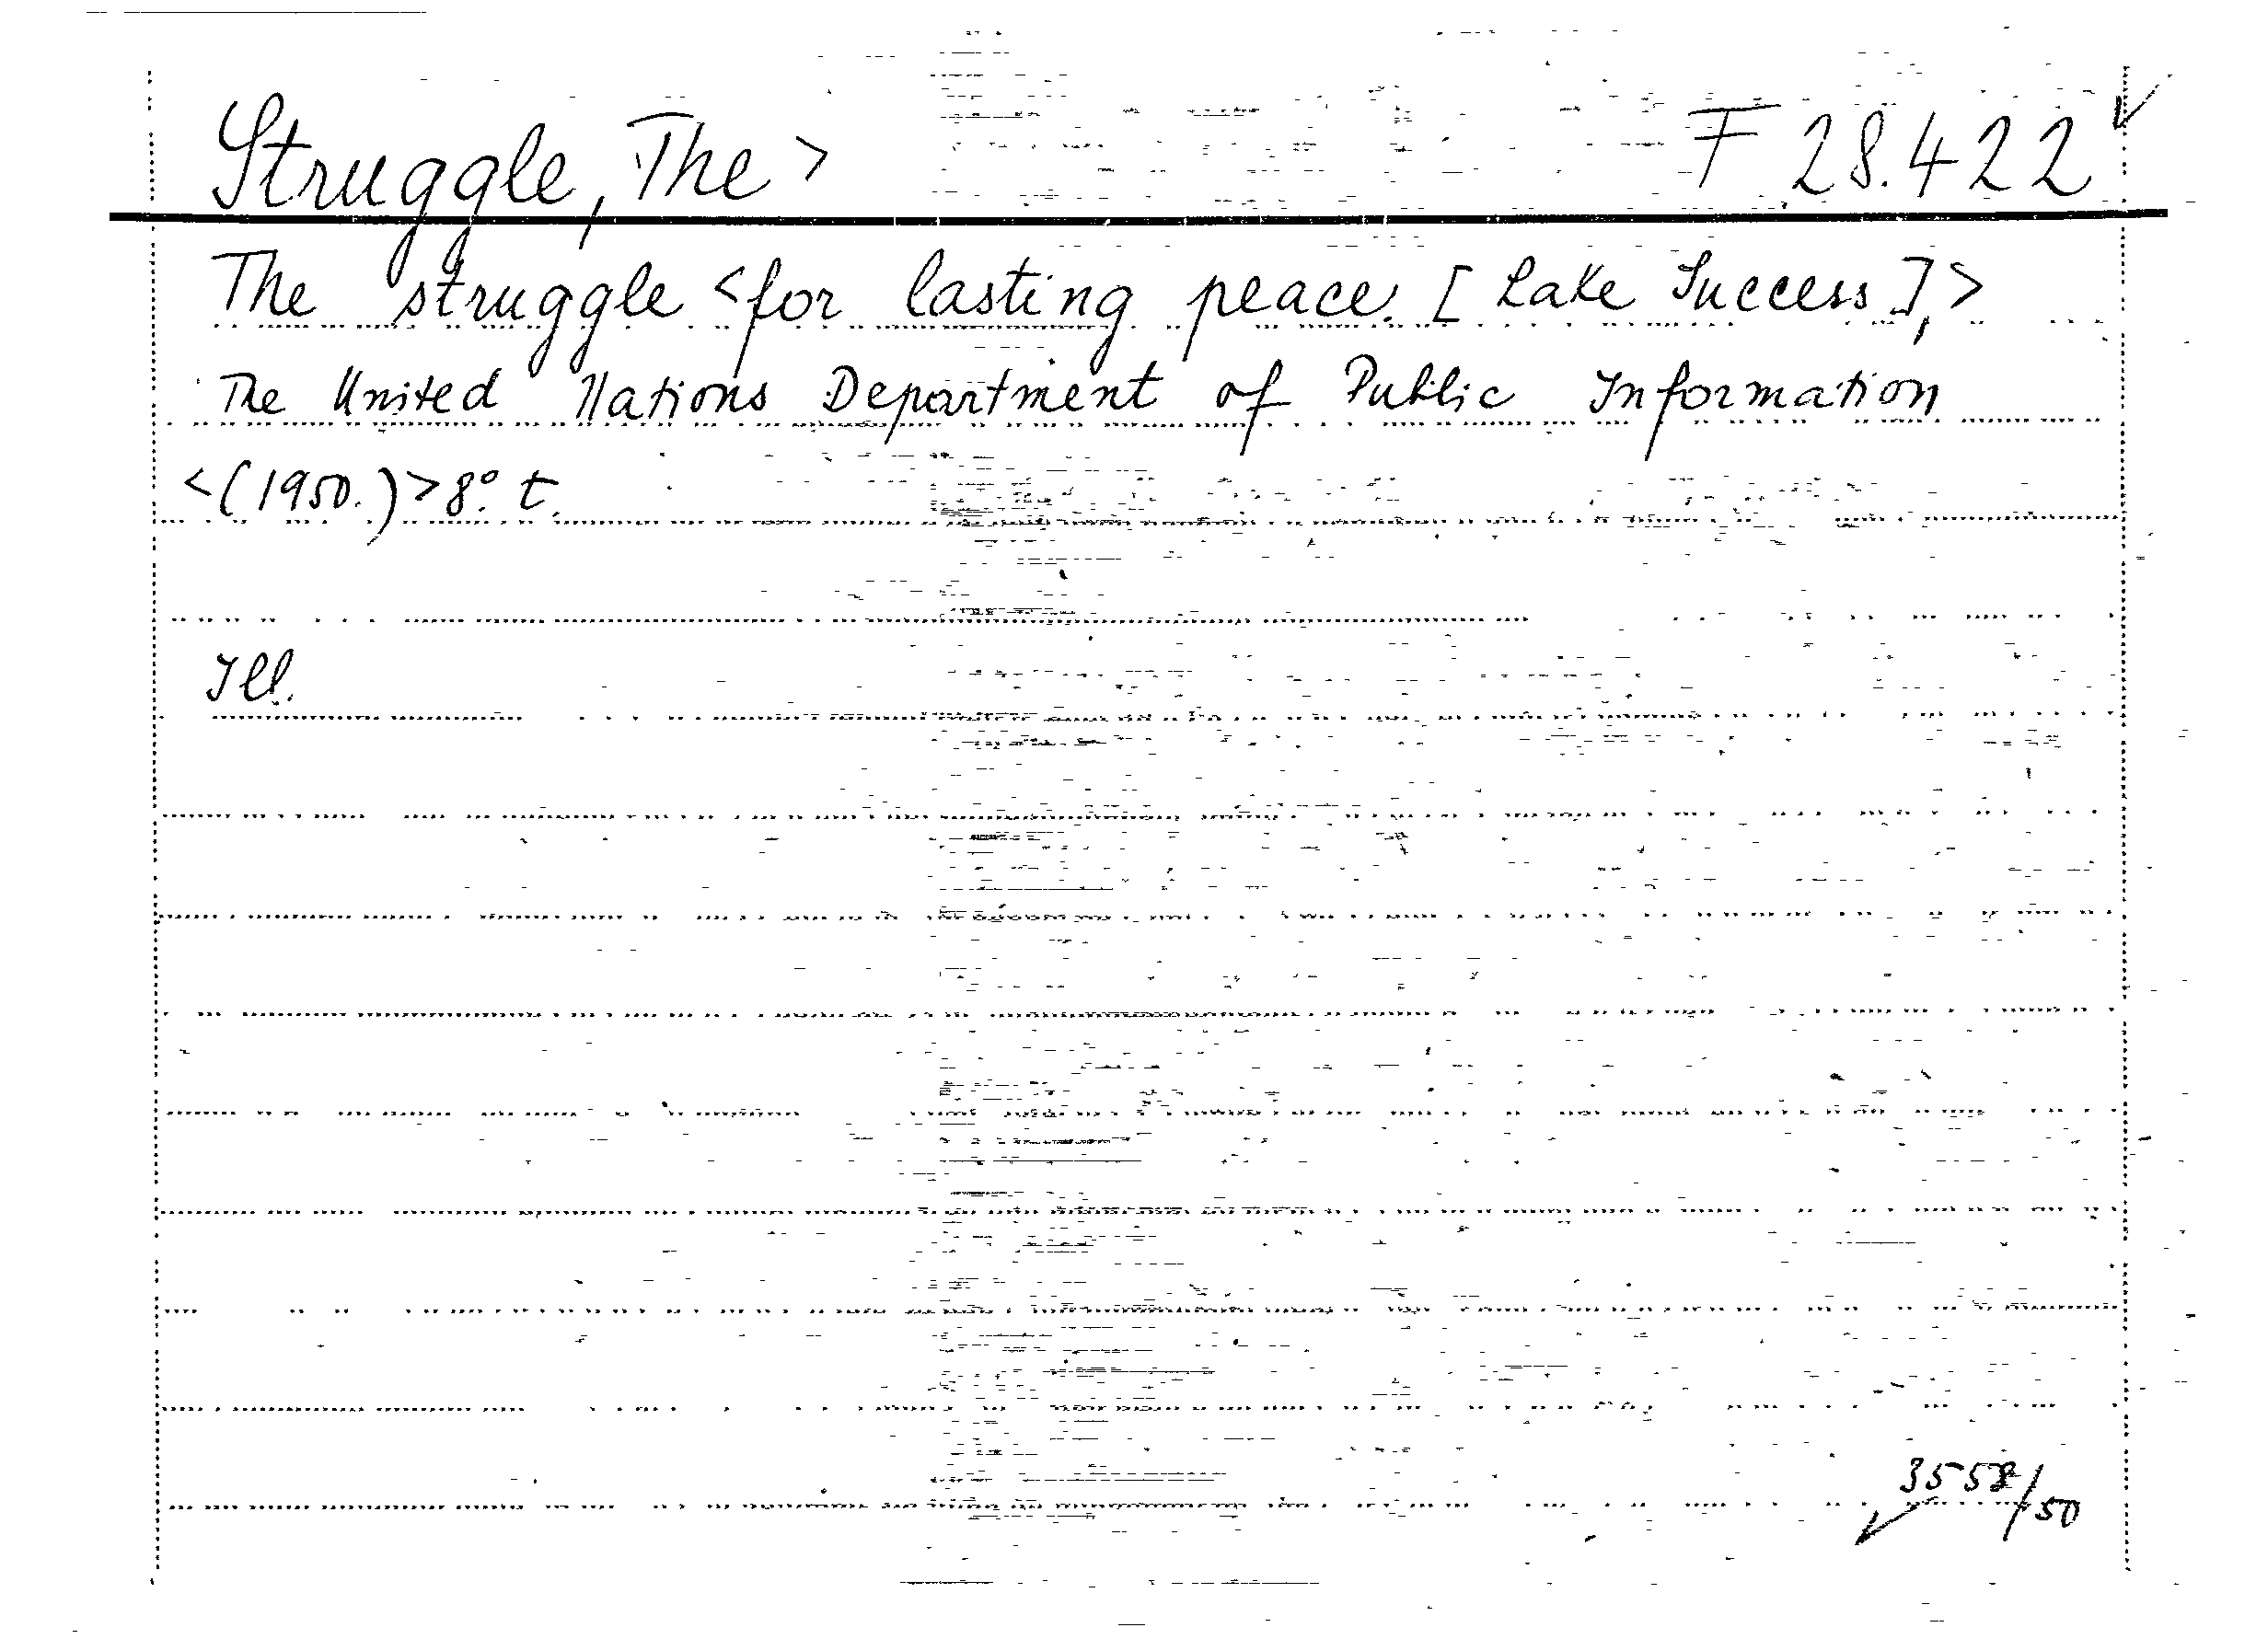 Struggle, The > F 28.422
The struggle < for lasting peace. [Lake Success],>
The United Nations Department of Public Information
<(1950.)> 8° t.
Ill.
3558/50